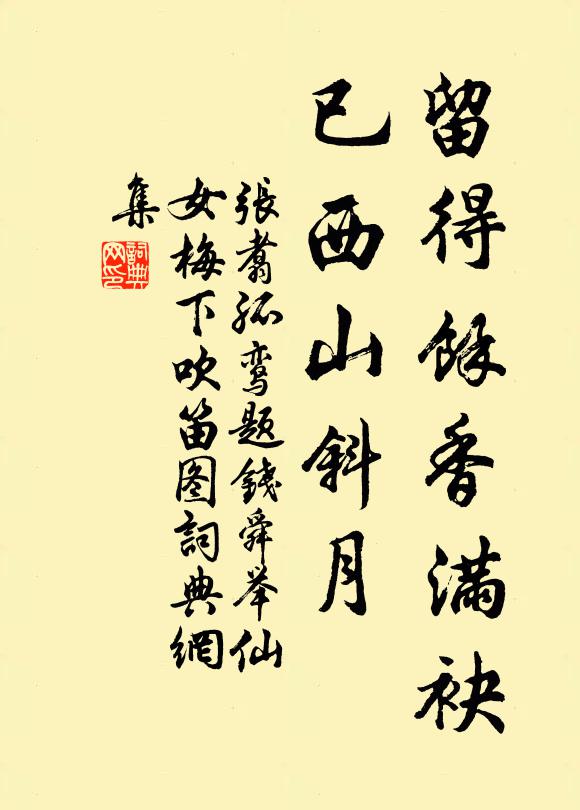 留得餘香滿袂
已西山斜月
張翥孤鸾題錢舜举仙
女梅下吹笛图詞典網
集
詞典
网印